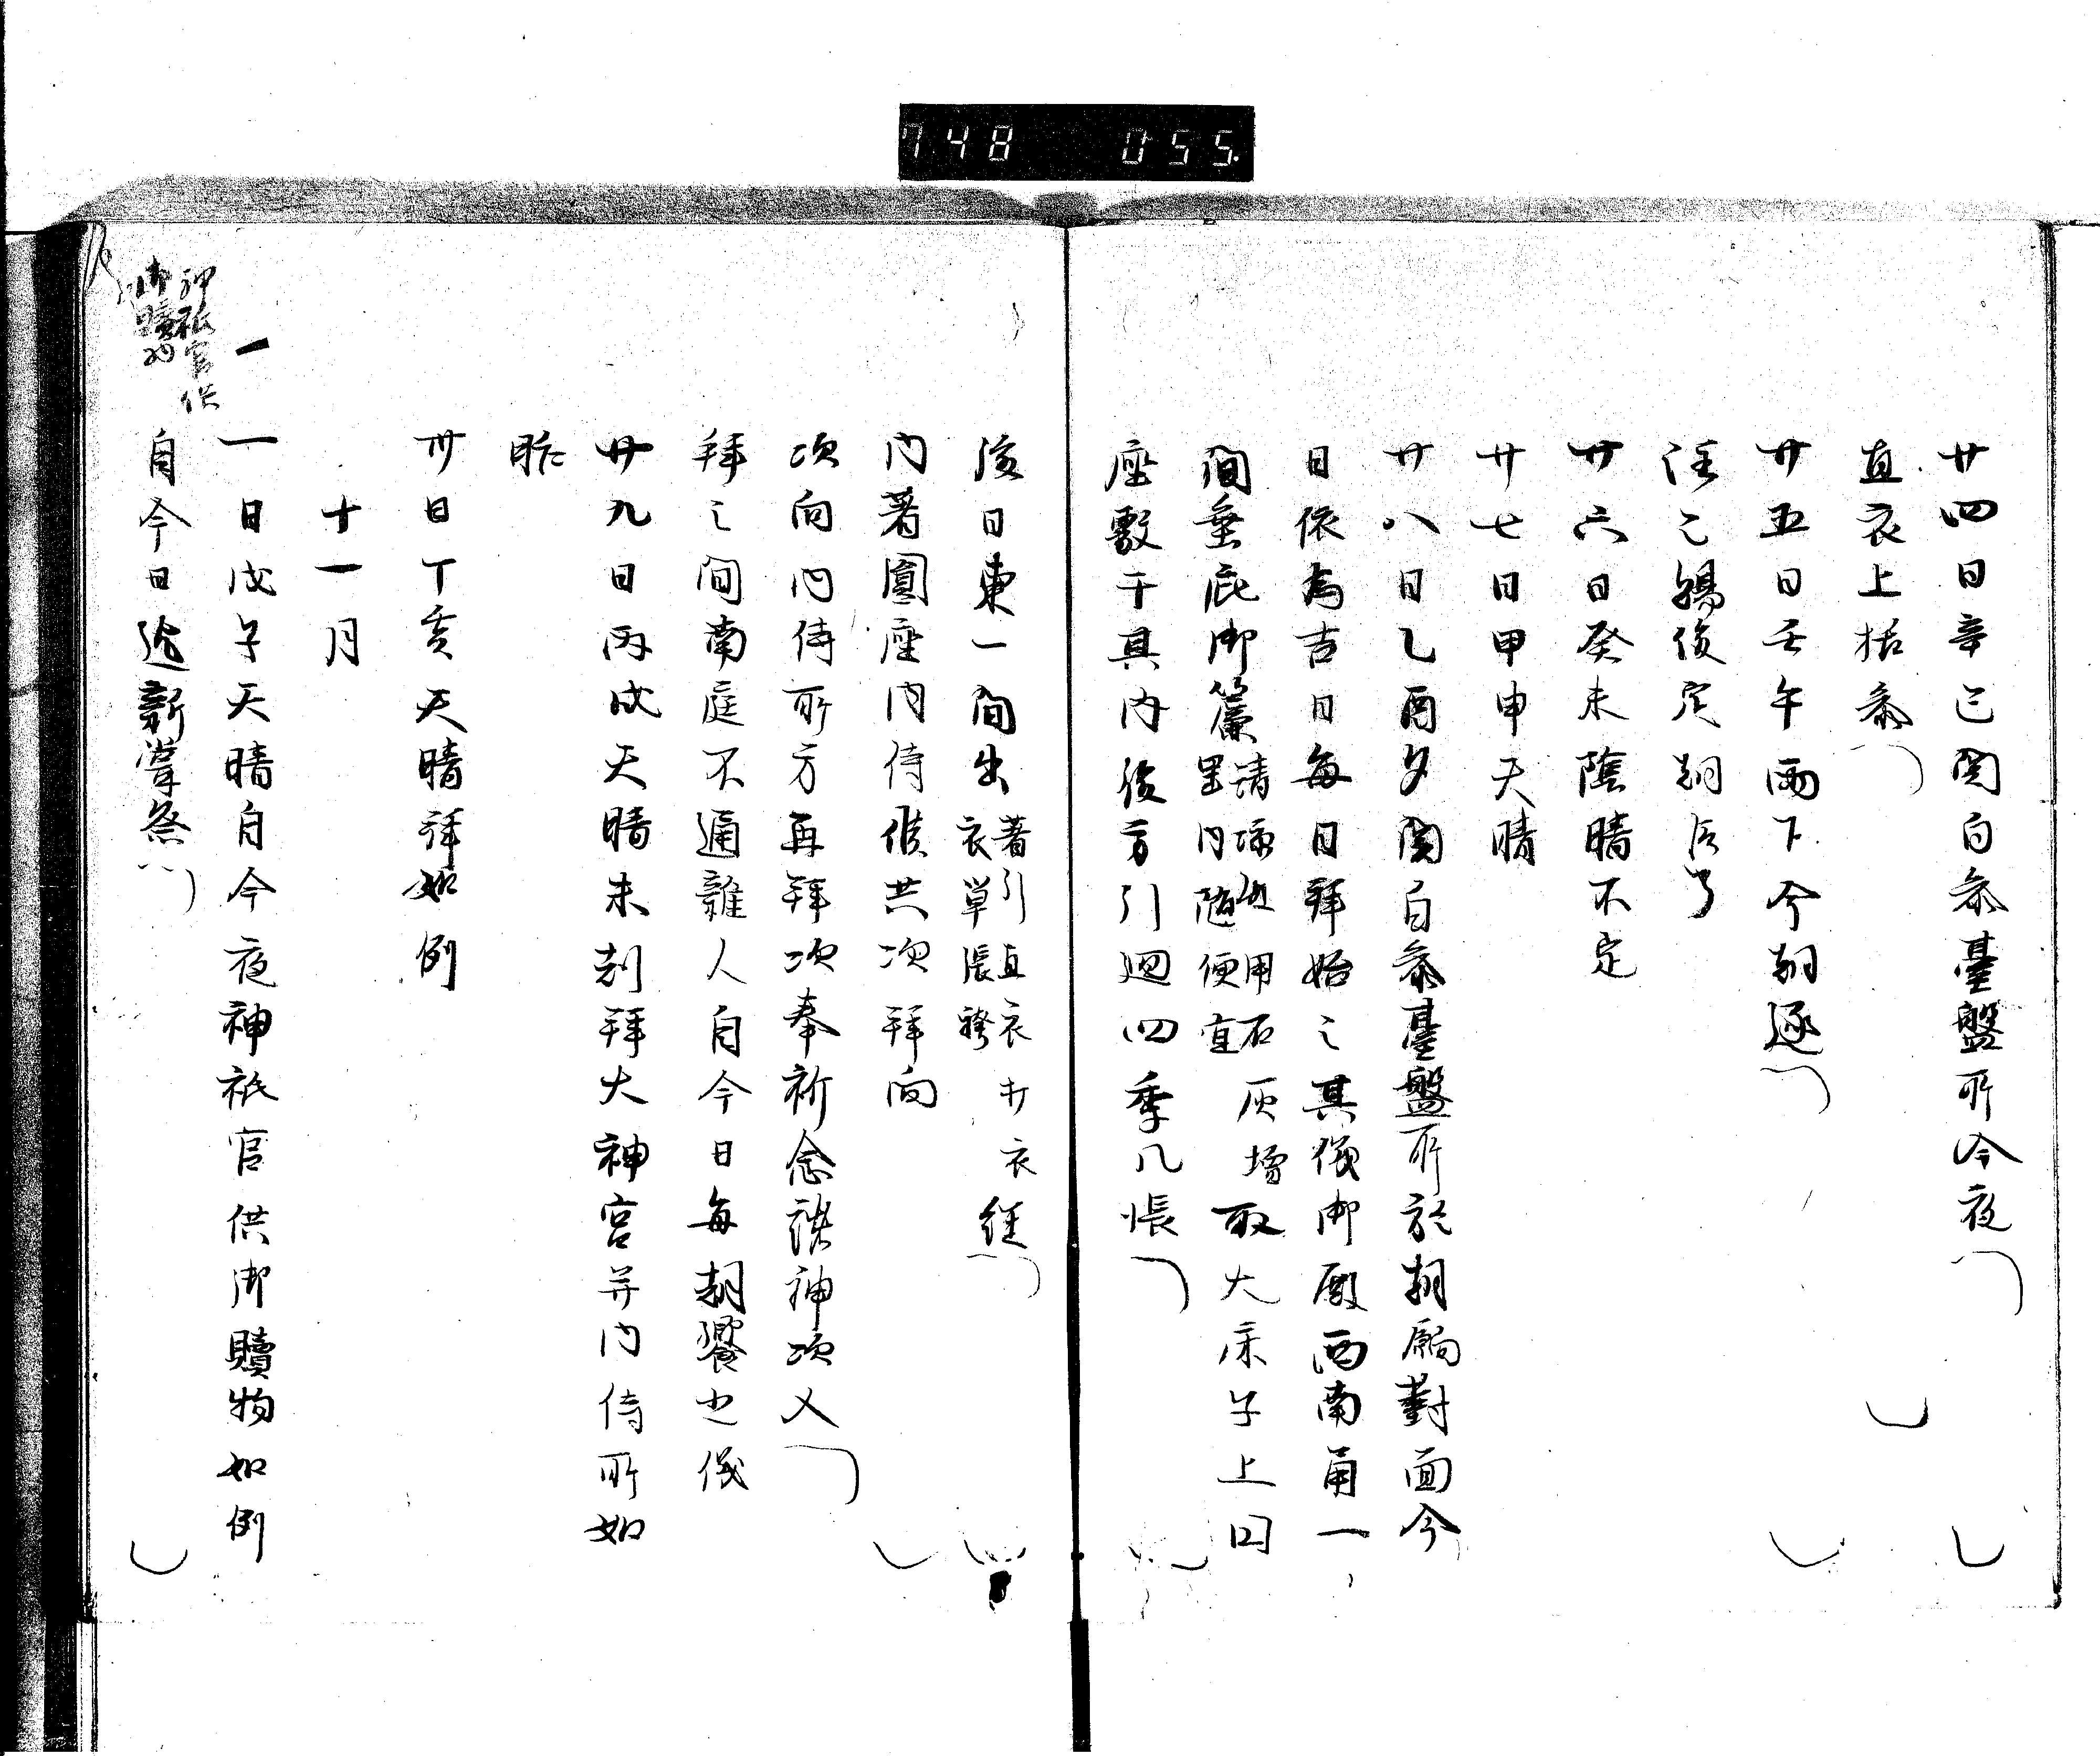 748 055.
廿四日辛巳関白参臺盤所今夜
直衣上括参
廿五日壬午雨下今朝逐
深定朝臣了
廿六日癸未陰晴不定
廿七日甲申天晴
廿八日乙酉夕関白参臺盤所於朝餉對面今
日依為吉日毎日拝始之其儀御殿西南角一
間垂庇御簾 用石灰壇取大床子上円
里内随便宜
座敷于其内後方引廻四季几帳
後日東一間出 著引直衣打衣
衣単張袴 経
内著圓座内侍候共次拝向
次向内侍所方再拝次奉祈念諸神次又
拝之間南庭不通雑人自今日毎朝饗之儀
廿九日丙戌天晴未刻拝大神宮并内侍所如
昨
卅日丁亥天晴拝如例
十一月
一日戊子天晴自今夜神祇官供御贖物如例
神祇官供
御贖物
自今日迄新嘗祭